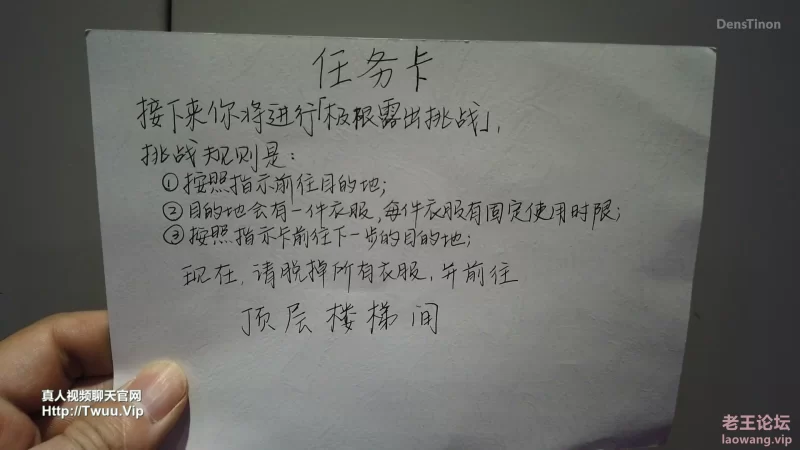 DensTinon
任务卡
接下来你将进行「极限露出挑战」,
挑战规则是:
①按照指示前往目的地;
②目的地会有一件衣服,每件衣服有固定使用时限;
③按照指示卡前往下一步的目的地;
现在,请脱掉所有衣服,并前往
顶层楼梯间
真人视频聊天官网
Http://Twuu.Vip
老王论坛
laowang.vip